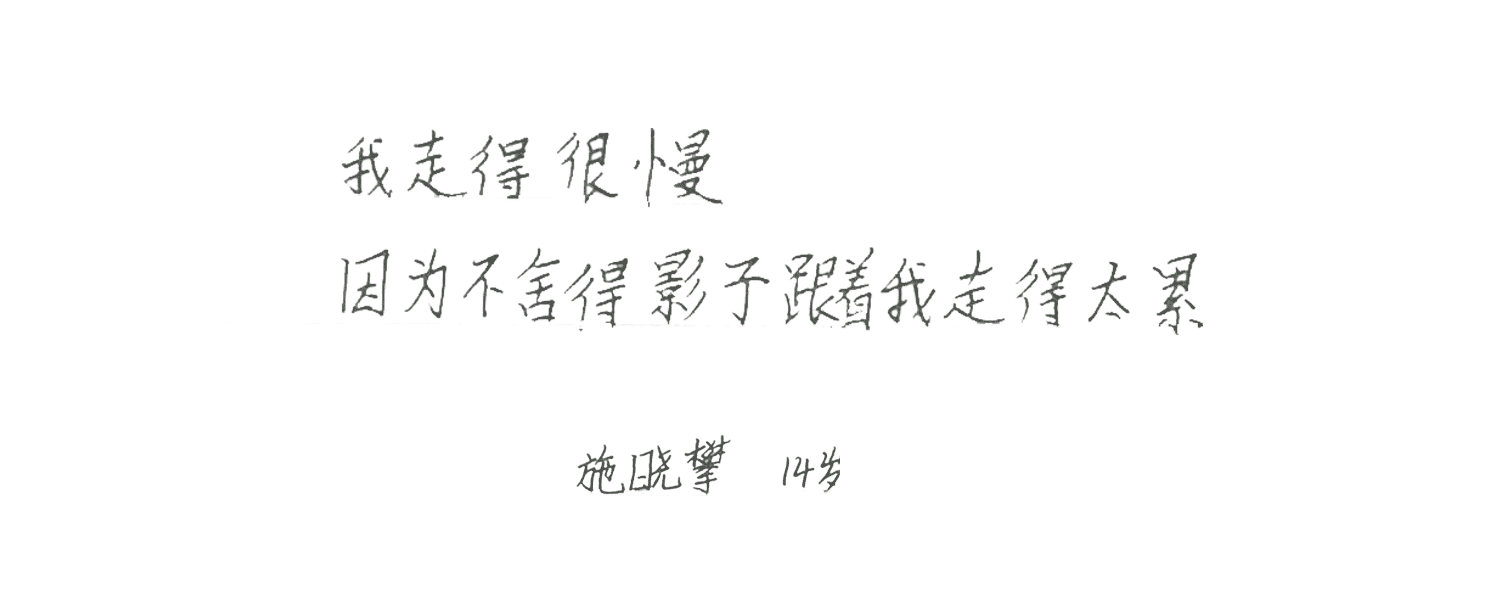 我走得很慢
因为不舍得影子跟着我走得太累
施晓攀 14岁